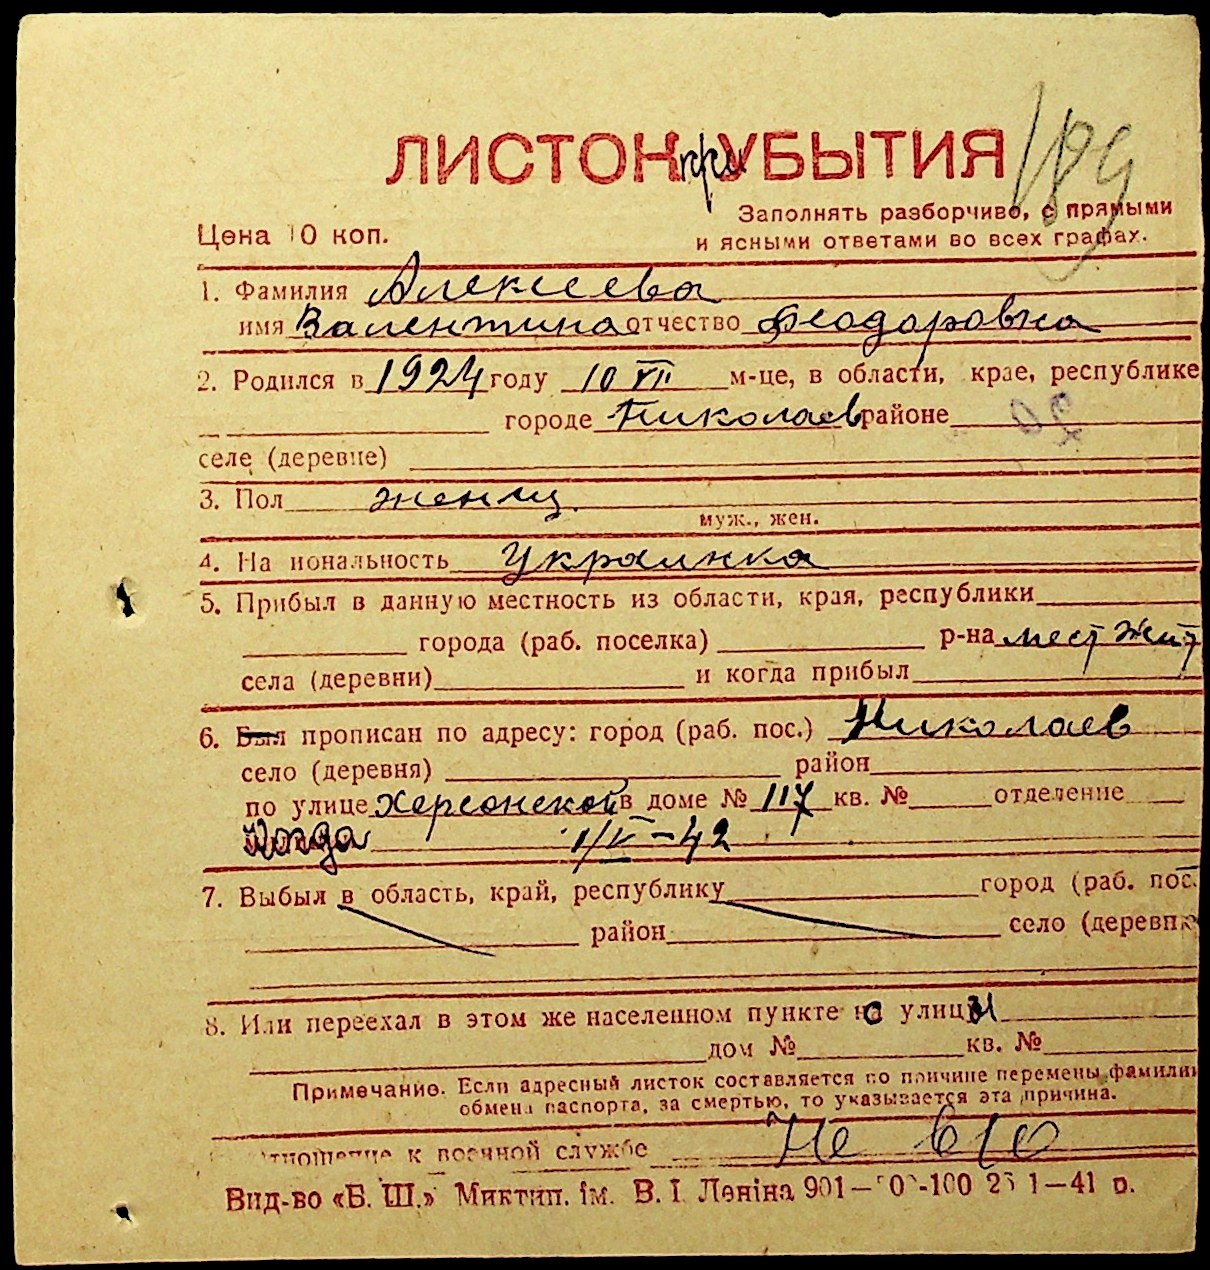 ЛИСТОК приУБЫТИЯ
189
Цена 10 коп.
Заполнять разборчиво, с прямыми
и ясными ответами во всех графах.
1. Фамилия Алексеева
имя Валентина отчество Феодоровна
2. Родился в 1924 году 10 VII м-це, в области, крае, республике
городе Николаев районе
селе (деревне)
3. Пол женщ.
муж., жен.
4. На иональность Украинка
5. Прибыл в данную местность из области, края, республики
города (раб. поселка) р-на мест жит
села (деревни) и когда прибыл
6. Был прописан по адресу: город (раб. пос.) Николаев
село (деревня) район
по улице Херсонской в доме № 117 кв. № отделение
Когда 1/V-42
7. Выбыл в область, край, республику город (раб. пос.
район село (деревне
8. Или переехал в этом же населенном пункте с улицы
дом № кв. №
Примечание. Если адресный листок составляется по причине перемены фамилии
обмена паспорта, за смертью, то указывается эта причина.
тношение к военной службе Не в/о
Вид-во «Б. Ш.» Миктип. ім. В. І. Леніна 901— 0 -100 25 1—41 р.